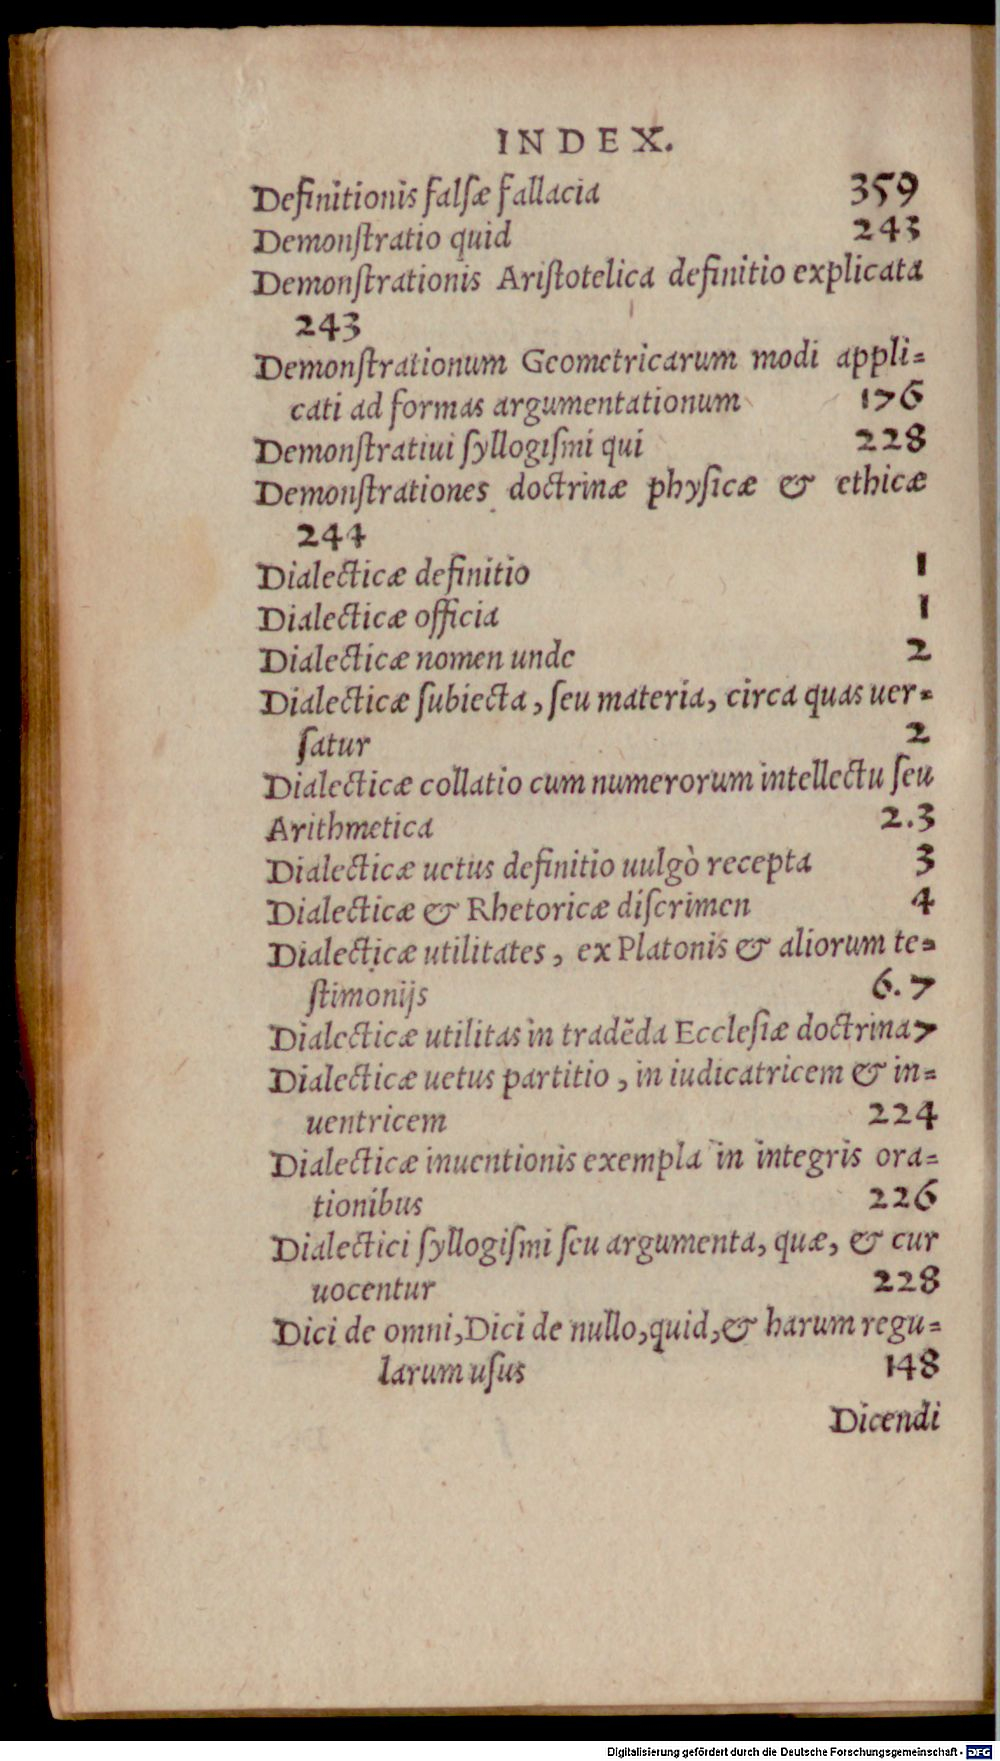 INDEX.
Definitionis falsæ fallacia 359
Demonſtratio quid 243
Demonſtrationis Ariſtotelica definitio explicata
243
Demonſtrationum Geometricarum modi appli=
cati ad formas argumentationum 176
Demonſtratiui ſyllogiſmi qui 228
Demonſtrationes doctrinæ phyſicæ & ethicæ
244
Dialecticæ definitio 1
Dialecticæ officia 1
Dialecticæ nomen unde 2
Dialecticæ ſubiecta, ſeu materia, circa quas uer=
ſatur 2
Dialecticæ collatio cum numerorum intellectu ſeu
Arithmetica 2.3
Dialecticæ uetus definitio uulgò recepta 3
Dialecticæ & Rhetoricæ diſcrimen 4
Dialecticæ utilitates, ex Platonis & aliorum te=
ſtimonijs 6.7
Dialecticæ utilitas in tradẽda Eccleſiæ doctrina 7
Dialecticæ uetus partitio, in iudicatricem & in=
uentricem 224
Dialecticæ inuentionis exempla in integris ora=
tionibus 226
Dialectici ſyllogiſmi ſeu argumenta, quæ, & cur
uocentur 228
Dici de omni, Dici de nullo, quid, & harum regu=
larum uſus 148
Dicendi
Digitalisierung gefördert durch die Deutsche Forschungsgemeinschaft - DFG